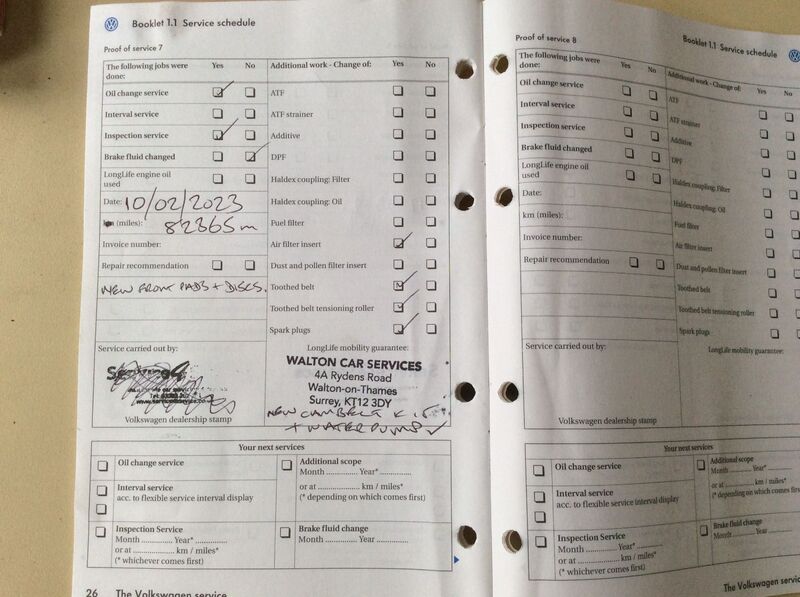 Booklet 1.1 Service schedule
Proof of service 7
The following jobs were done: Yes No
Oil change service
Interval service
Inspection service
Brake fluid changed
LongLife engine oil used
Date: 10/02/2023
km (miles): 82365 m
Invoice number:
Repair recommendation
NEW FRONT PADS + DISCS.
Additional work - Change of: Yes No
ATF
ATF strainer
Additive
DPF
Haldex coupling: Filter
Haldex coupling: Oil
Fuel filter
Air filter insert
Dust and pollen filter insert
Toothed belt
Toothed belt tensioning roller
Spark plugs
Service carried out by:
Volkswagen dealership stamp
LongLife mobility guarantee:
WALTON CAR SERVICES
4A Rydens Road
Walton-on-Thames
Surrey, KT12 3DY
NEW CAMBELT KIT
+ WATERPUMP
Your next services
Oil change service
Interval service
acc. to flexible service interval display
Inspection Service
Month ............ Year* ............
or at ............ km / miles*
(* whichever comes first)
Additional scope
Month ............ Year* ............
or at ............ km / miles*
(* depending on which comes first)
Brake fluid change
Month ............ Year ............
26 The Volkswagen service
Booklet 1.1 Service schedule
Proof of service 8
The following jobs were done: Yes No
Oil change service
Interval service
Inspection service
Brake fluid changed
LongLife engine oil used
Date:
km (miles):
Invoice number:
Repair recommendation
Additional work - Change of: Yes No
ATF
ATF strainer
Additive
DPF
Haldex coupling: Filter
Haldex coupling: Oil
Fuel filter
Air filter insert
Dust and pollen filter insert
Toothed belt
Toothed belt tensioning roller
Spark plugs
Service carried out by:
Volkswagen dealership stamp
LongLife mobility guarantee:
Your next services
Oil change service
Interval service
acc. to flexible service interval display
Inspection Service
Month ............ Year* ............
or at ............ km / miles*
(* whichever comes first)
Additional scope
Month ............ Year* ............
or at ............ km / miles*
(* depending on which comes first)
Brake fluid change
Month ............ Year
The Volkswagen